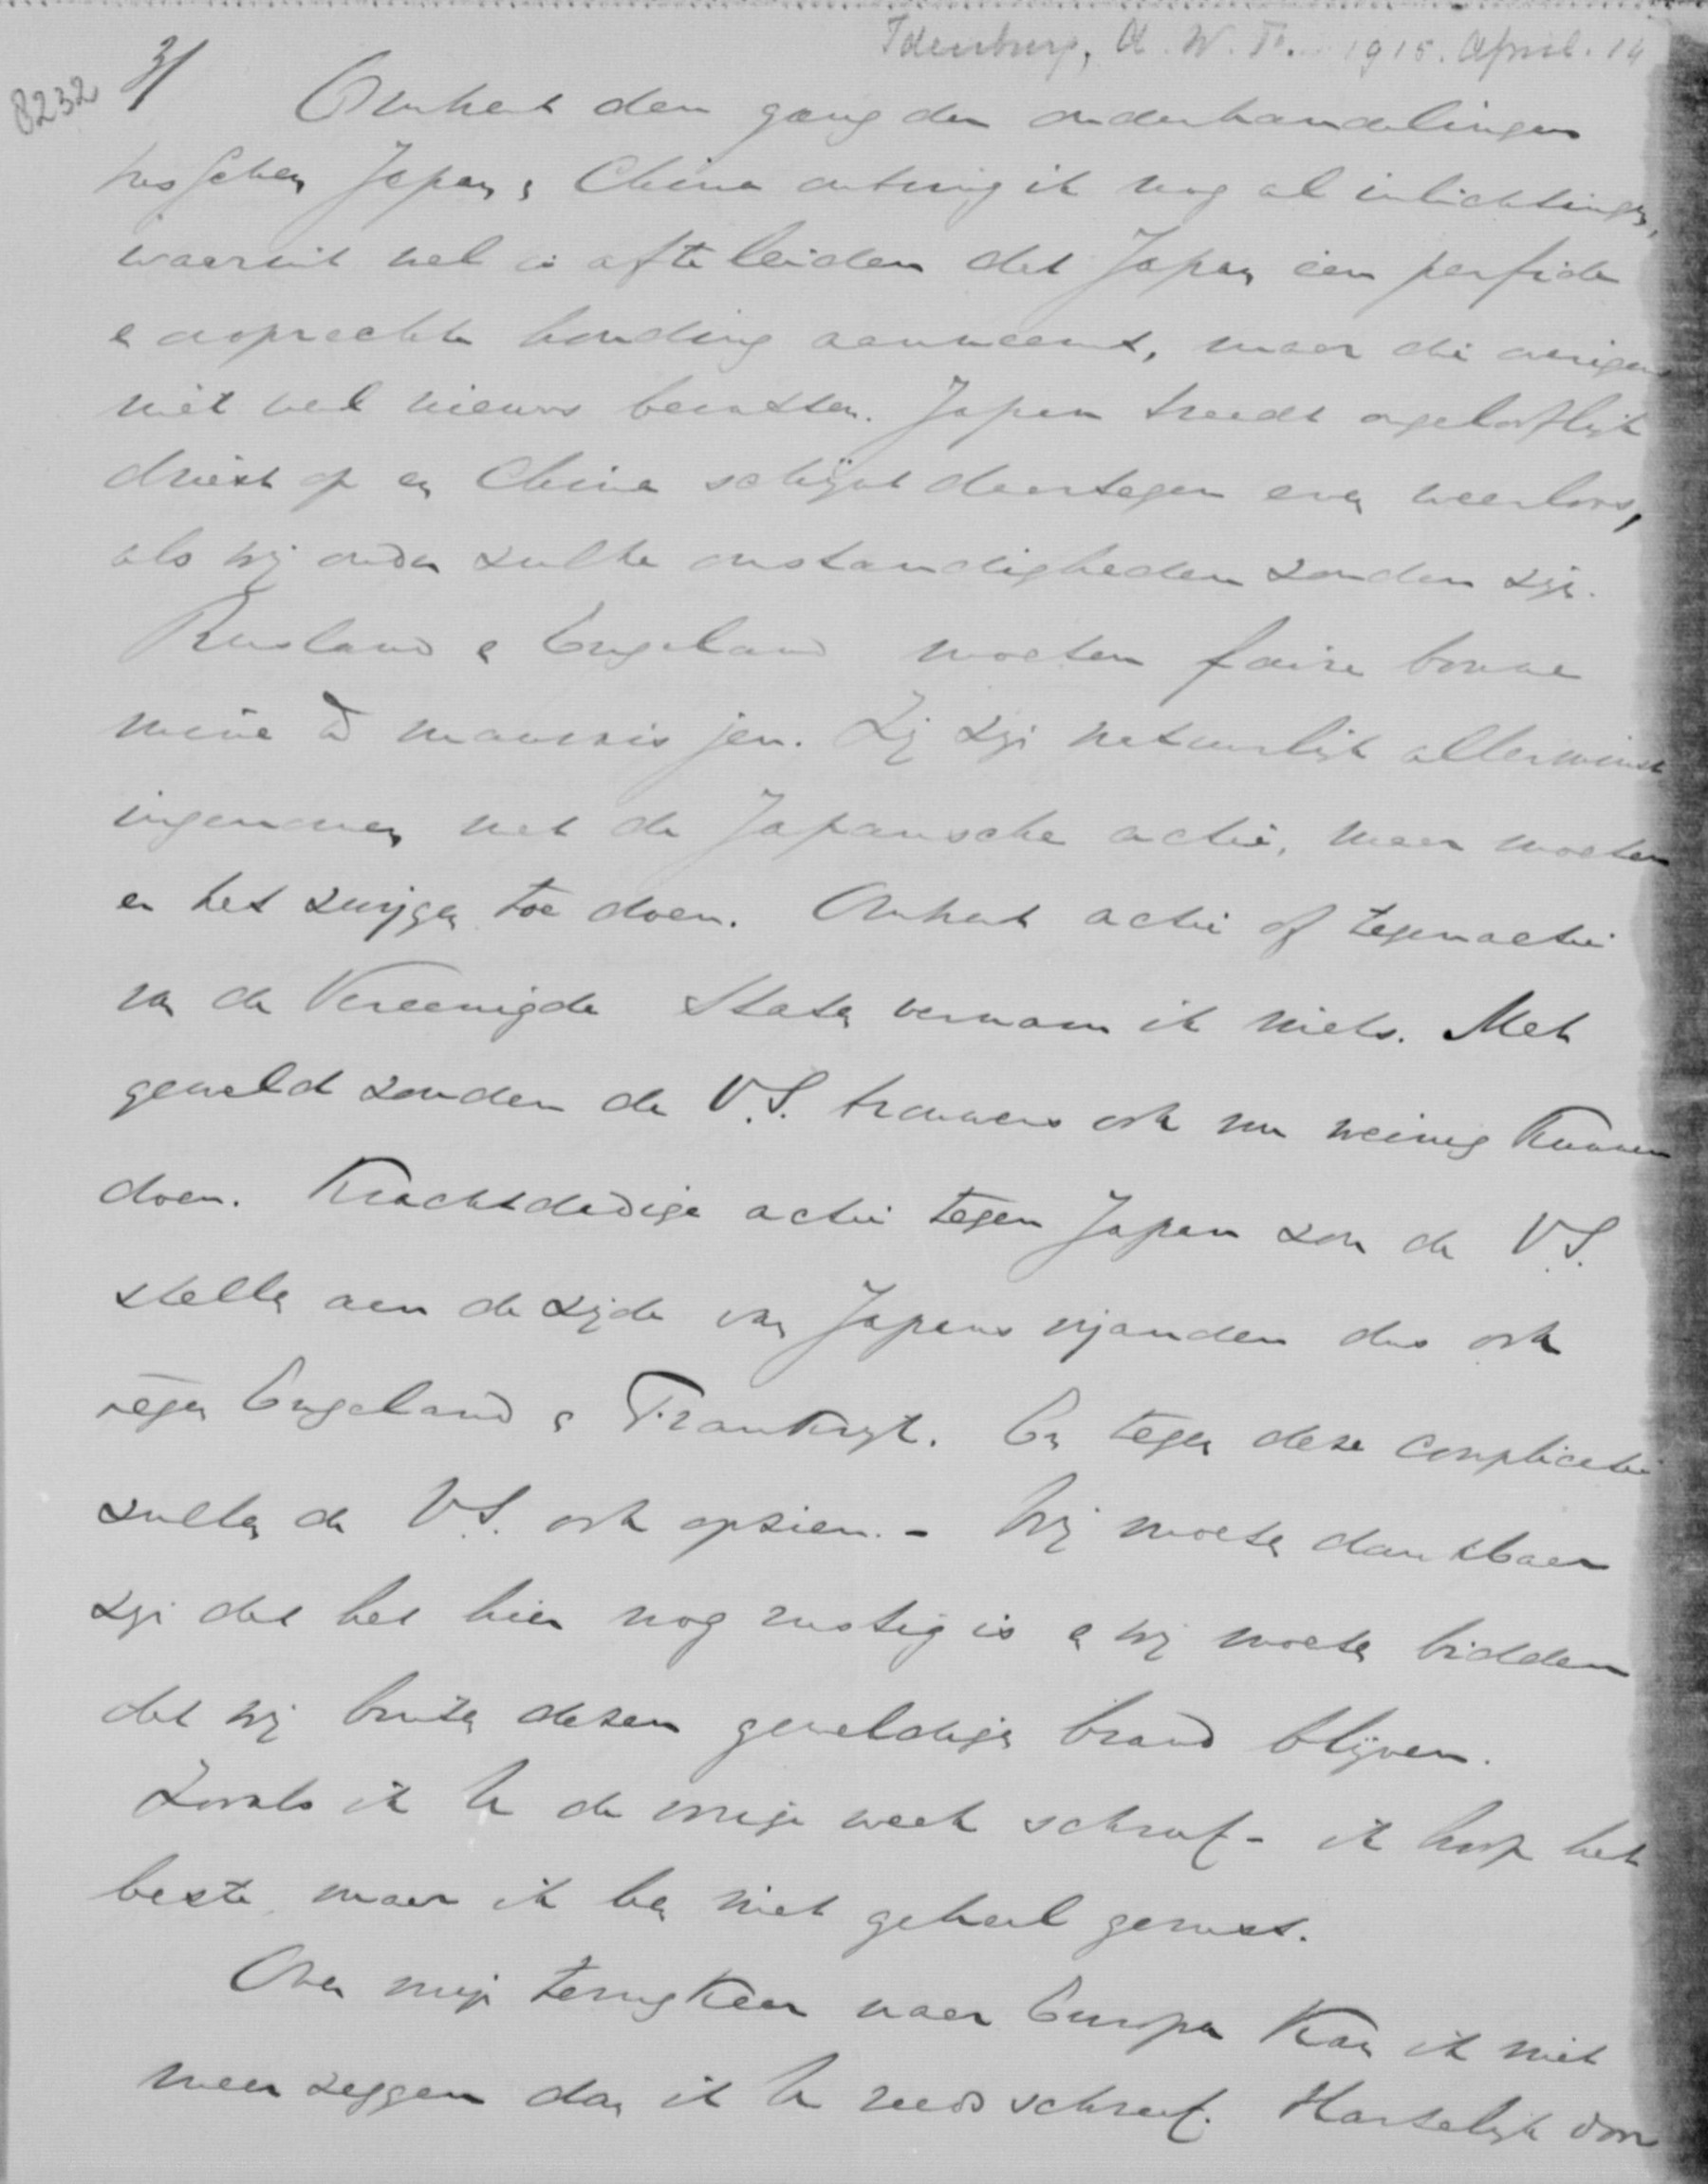 Idenburg, A. W. F. 1915. April. 14
8232
3/
Omtrent den gang der onderhandelingen
tusschen Japan & China ontving ik nog al inlichtingen,
waaruit wel is af te leiden dat Japan een perfide
& onoprechte houding aanneemt, maar die overigens
niet veel nieuws bevatten. Japan treedt ongelooflijk
driest op en China schijnt daartegen even weerloos,
als wij onder zulke omstandigheden zouden zijn.
Rusland & Engeland moeten faire bonne
mine à mauvais jeu. Zij zijn natuurlijk allerminst
ingenomen met de Japansche actie, maar moeten
er het zwijgen toe doen. Omtrent actie of tegenactie
van de Vereenigde Staten vernam ik niets. Met
geweld zouden de V.S. trouwens ook nu weinig kunnen
doen. Krachtdadige actie tegen Japan zou de V.S.
stellen aan de zijde van Japans vijanden dus ook
tegen Engeland & Frankrijk. En tegen deze complicatie
zullen de V.S. ook opzien. - Wij moeten dankbaar
zijn dat het hier nog rustig is & wij moeten bidden
dat wij buiten dezen geweldigen brand blijven.
Zooals ik U de vorige week schreef - ik hoop het
beste, maar ik ben niet geheel gerust.
Over mijn terugkeer naar Europa kan ik niet
meer zeggen dan ik U reeds schreef. Hartelijk